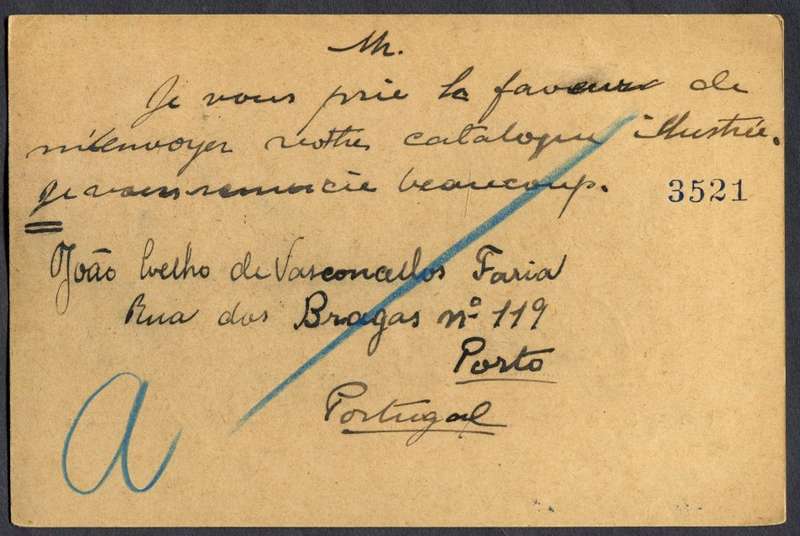 M.
Je vous prie la faveur de
m'envoyer votre catalogue illustrée.
Je vous remercie beaucoup.
3521
João Coelho de Vasconcellos Faria
Rua dos Bragas nº 119
Porto
Portugal
a